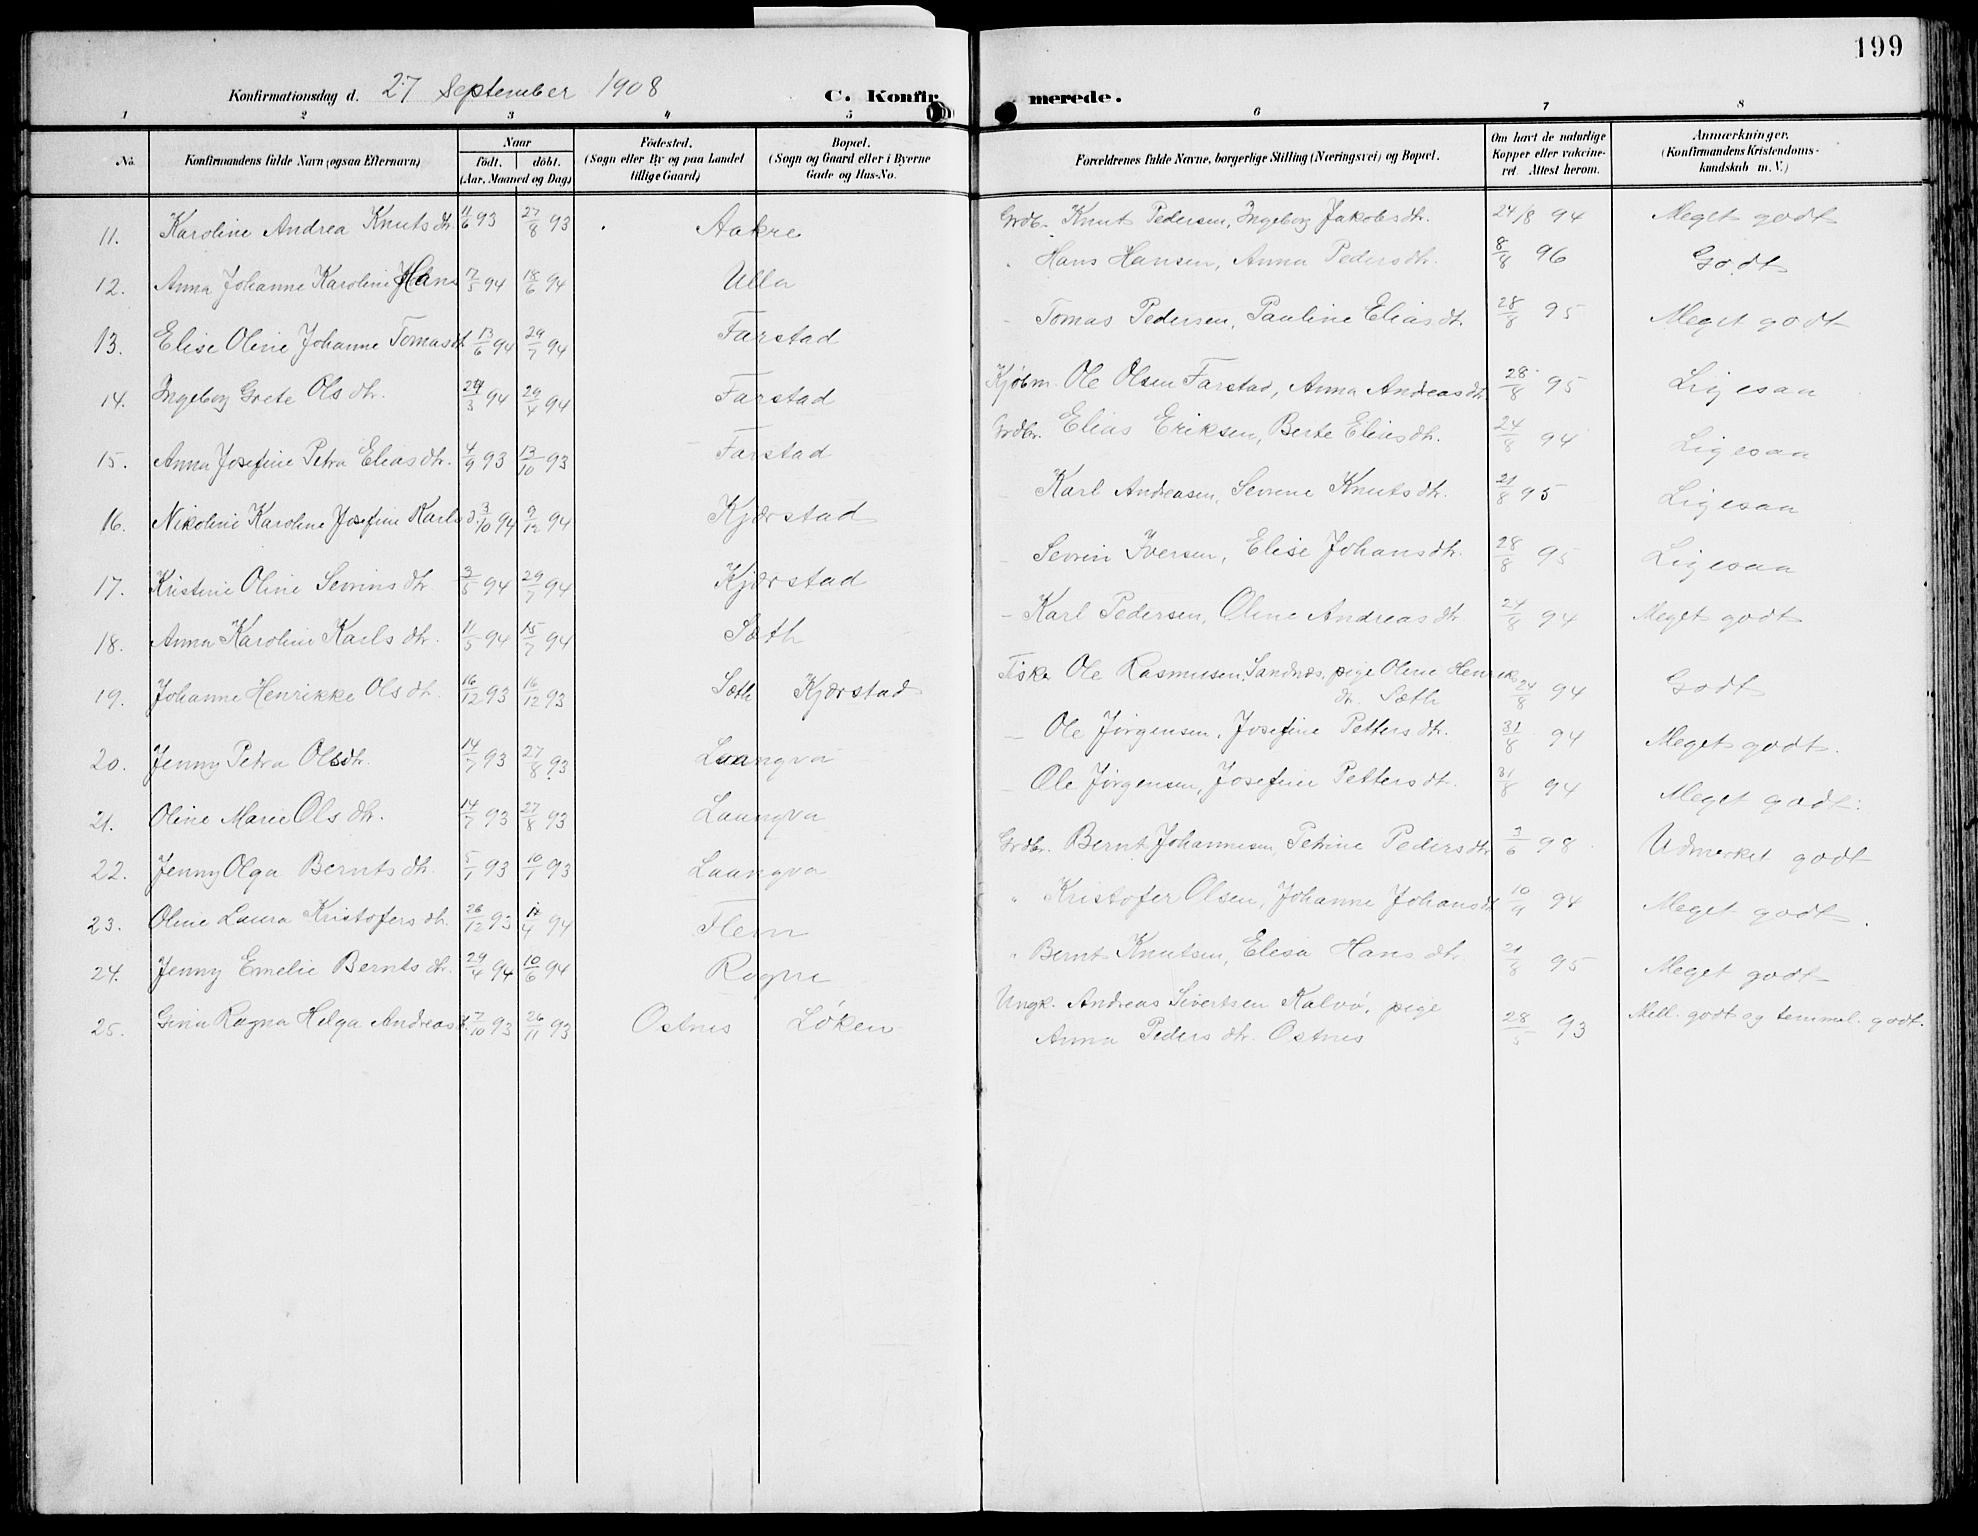 199
Konfirmationsdag d. 27 September 1908 C. Konfirmerede.
1 2 3 4 5 6 7 8
No. Konfirmandens fulde Navn (ogsaa Efternavn) Naar födt. döbt. (Aar, Maaned og Dag) Födested. (Sogn eller By og paa Landet tillige Gaard) Bopæl. (Sogn og Gaard eller i Byerne Gade og Hus-No. Forældrenes fulde Navne, borgerlige Stilling (Næringsvei) og Bopæl. Om havt de naturlige Kopper eller vakcineret. Attest herom. Anmærkninger. (Konfirmandens Kristendomskundskab m. V.)
11. Karoline Andrea Knutsdtr. 11/6 93 27/8 93 Aakre Grdbr. Knut Pedersen, Ingeborg Jakobsdtr. 24/8 94 Meget godt
12. Anna Johanne Karoline Hans 17/5 94 18/6 94 Ulla " Hans Hansen, Anna Pedersdtr. 8/8 96 Godt
13. Elise Oline Johanne Tomasdt 13/6 94 29/7 94 Farstad - Tomas Pedersen, Pauline Eliasdt. 28/8 95 Meget godt
14. Ingeborg Grete Olsdtr. 24/3 94 29/4 94 Farstad Kjøbm. Ole Olsen Farstad, Anna Andreasdtr 28/8 95 Ligesaa
15. Anna Josefine Petra Eliasdtr. 4/9 93 13/10 93 Farstad Grdbr. Elias Eriksen, Berte Eliasdtr. 24/8 94 Ligesaa
16. Nikoline Karoline Josefine Karlsd. 3/10 94 9/12 94 Kjærstad - Karl Andreasen, Sevrine Knutsdtr. 21/8 95 Ligesaa
17. Kristine Oline Sevrinsdtr 3/5 94 29/7 94 Kjærstad - Sevrin Iversen, Elise Johansdtr. 28/8 95 Ligesaa
18. Anna Karoline Karlsdtr. 11/5 94 15/7 94 Sæth - Karl Pedersen, Oline Andreasdtr 24/8 94 Meget godt
19. Johanne Henrikke Olsdtr. 16/12 93 16/12 93 Sæth Kjærstad Fisker Ole Rasmusen Sandnæs, pige Oline Henriks
dtr. Sæth 24/8 94 Godt
20. Jenny Petra Olsdtr. 14/7 93 27/8 93 Laangva - Ole Jørgensen, Josefine Pettersdtr. 31/8 94 Meget godt.
21. Oline Marie Olsdtr. 14/7 93 27/8 93 Laangva - Ole Jørgensen, Josefine Pettersdtr. 31/8 94 Meget godt.
22. Jenny Olga Berntsdtr. 5/1 93 10/1 93 Laangva Grdbr. Bernt Johannesen, Petrine Pedersdtr 3/6 98 Udmerket godt
23. Oline Laura Kristofersdtr. 26/12 93 /4 94 Flem " Kristofer Olsen, Johanne Johansdt 10/9 94 Meget godt.
24. Jenny Emelie Berntsdtr. 29/4 94 10/6 94 Rogne " Bernt Knutsen, Elisa Hansdtr. 21/8 95 Meget godt
25. Gina Ragna Helga Andreasd. 7/10 93 26/11 93 Ostnes Løken Ungk. Andreas Sivertsen Kalvø, pige
Anna Pedersdtr. Ostnes 28/5 93 Mell. godt og temmel. godt.